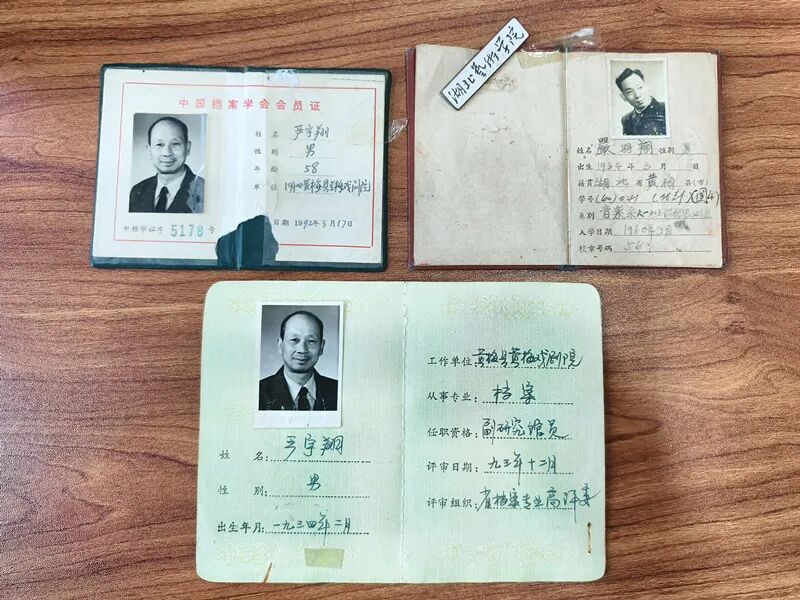 中国档案学会会员证
姓 名 严宇翔
性 别 男
年 龄 58
单 位 湖北黄梅县黄梅戏剧院
日期 1992年3月17日
中档学证字 5178 号
湖北艺术学院
姓名 嚴宇翔 性别 男
出生 1934年3月 日
籍贯 湖北 省 黄梅 县(市)
学号 (60)041
系别 音楽系
入学日期 1960年9月
校章号码 56号
姓 名: 严宇翔
性 别: 男
出生年月: 一九三四年二月
工作单位: 黄梅县黄梅戏剧院
从事专业: 档案
任职资格: 副研究馆员
评审日期: 九三年十二月
评审组织: 省档案专业高评委